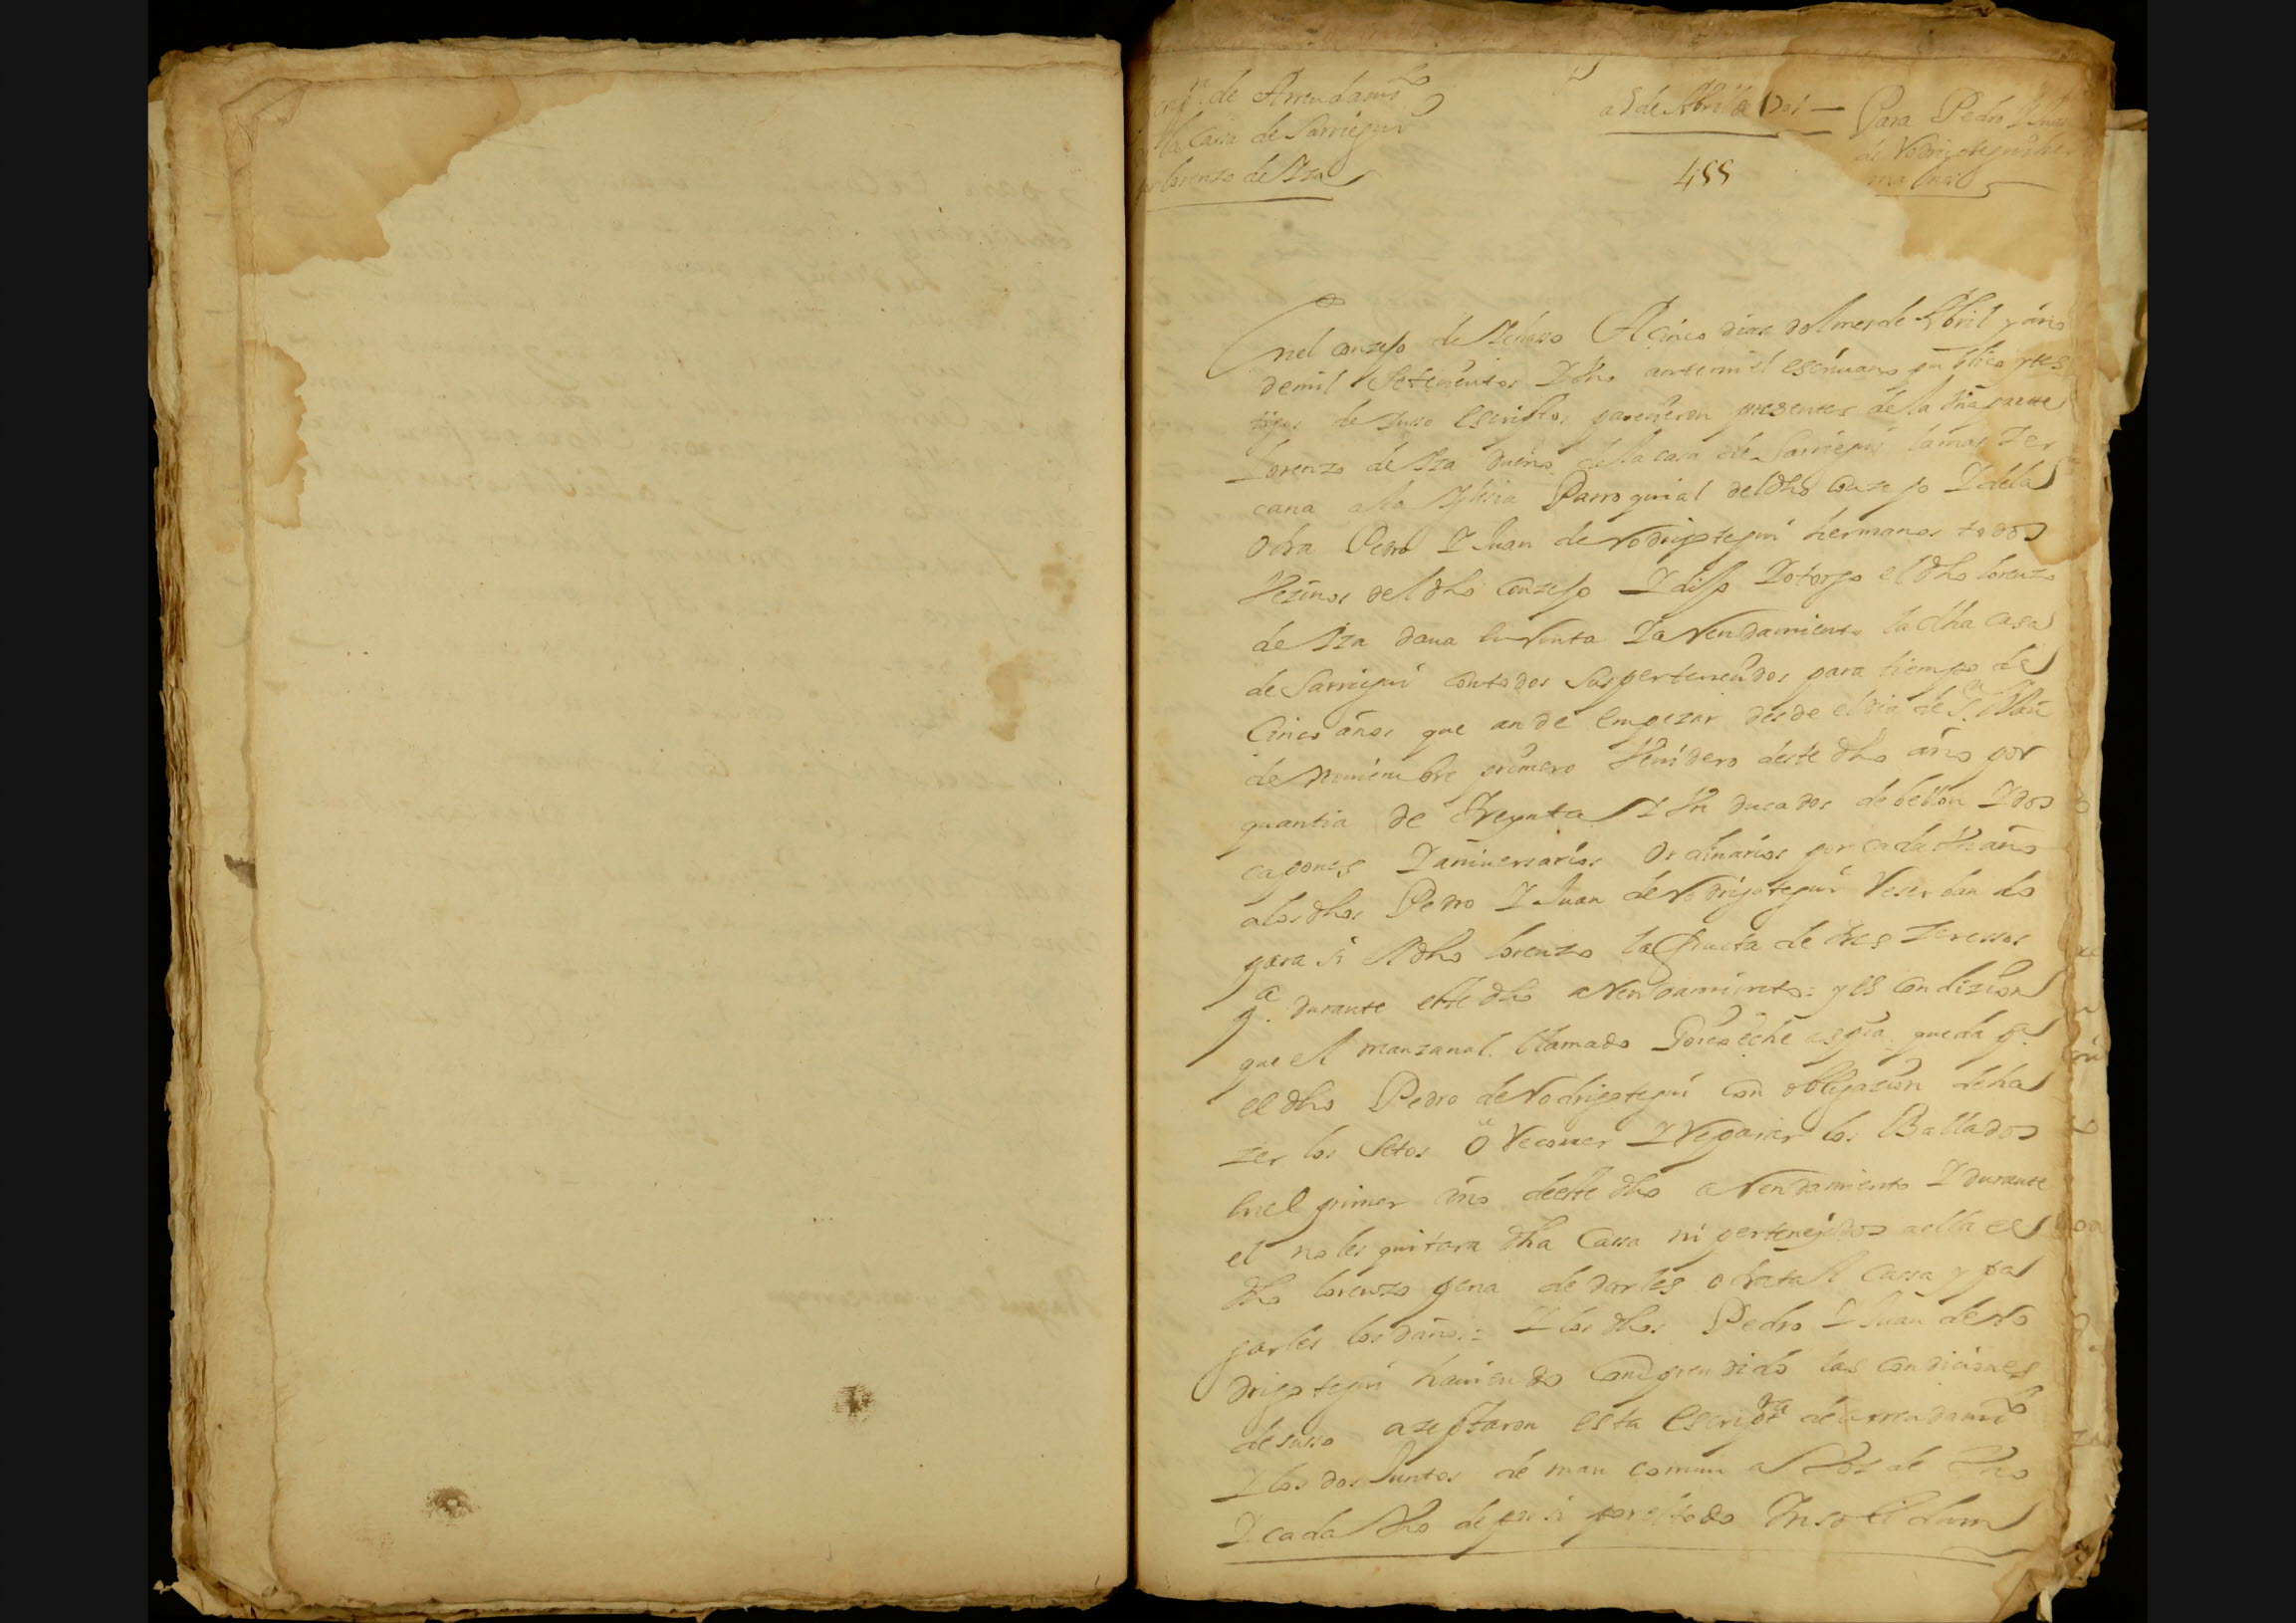 de Arrendami^to
la Cassa de Sarriegui
lorenzo de Yza
a 5 de Abril de 1701 —
455
Para Pedro Y Juan
de Rodrigotegui her
manos
Enel conzejo de A cinco dias del mes de Abril y año
demil Setecientos Y Uno antemi el escriuano publico ytes
tigos de yuso escriptos parecieron presentes dela Una parte
Lorenzo de Yza dueño dela casa de Sarriegui lamas zer
cana ala Yglesia Parroquial deldho conzejo Y dela
otra Pedro Y Juan de Rodrigotegui hermanos todos
Vezinos deldho conzejo Y dijo Y otorgo el dho lorenzo
de Yza daua en Renta Y arrendamiento la dha casa
de Sarriegui contodos sus pertenecidos para tiempo de
Cinco años que an de empezar desde el dia de S.^n Min
de Nouiembre primero Venidero deste dho año por
quantia de treynta Y Un ducados de bellon Y dos
capones Y aniuersarios ordinarios por cada Un año
alos dhos Pedro Y Juan de Rodrigotegui Reserbando
para si el dho lorenzo la fruta de tres zerezos
p.^a durante este dho arrendamiento = y es condizion
que el manzanal llamado queda p.^a
el dho Pedro de Rodrigotegui con obligazion de ha
zer los setos o Recorrer Y Reparar los Ballados
enel primer año deeste dho arrendamiento Y durante
el no les quitara dha Cassa ni pertenezidos aella el
dho lorenzo pena de darles otra tal Cassa y pa
garles los daños = Y los dhos Pedro Y Juan de Ro
drigotegui hauiendo conprendido las condiciones
desusso azeptaron esta escript^ra de arrendami^to
Y los dos Juntos de man comun a Voz de Uno
Y cada Uno de por si por el todo Ynsolidum